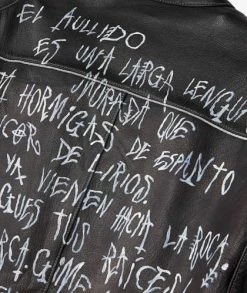 EL AULLIDO
ES UNA LARGA LENGU
MORADA QUE
A HORMIGAS DE ESPANTO
ICOR DE LIRIOS.
YA VIENEN HACIA LA ROCA.
GUES TUS
RAÍCES!